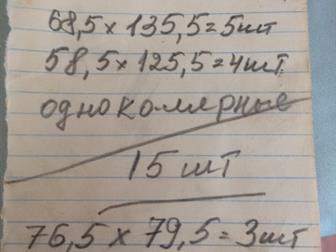 68,5 x 135,5 = 5шт
58,5 x 125,5 = 4шт
однокамерные
15 шт
76,5 x 79,5 = 3шт